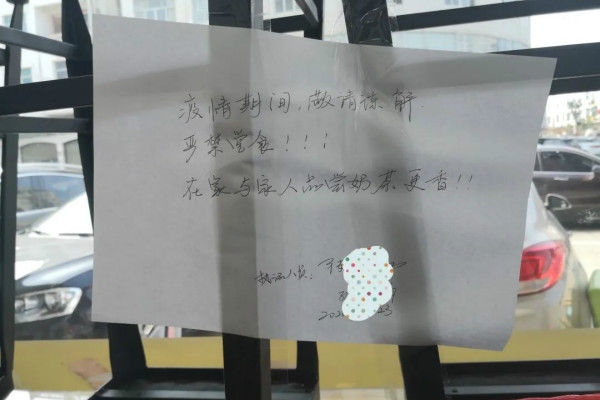 疫情期间,敬请谅解.
严禁堂食!!!
在家与家人品尝奶茶更香!!
执法人员:
202 23